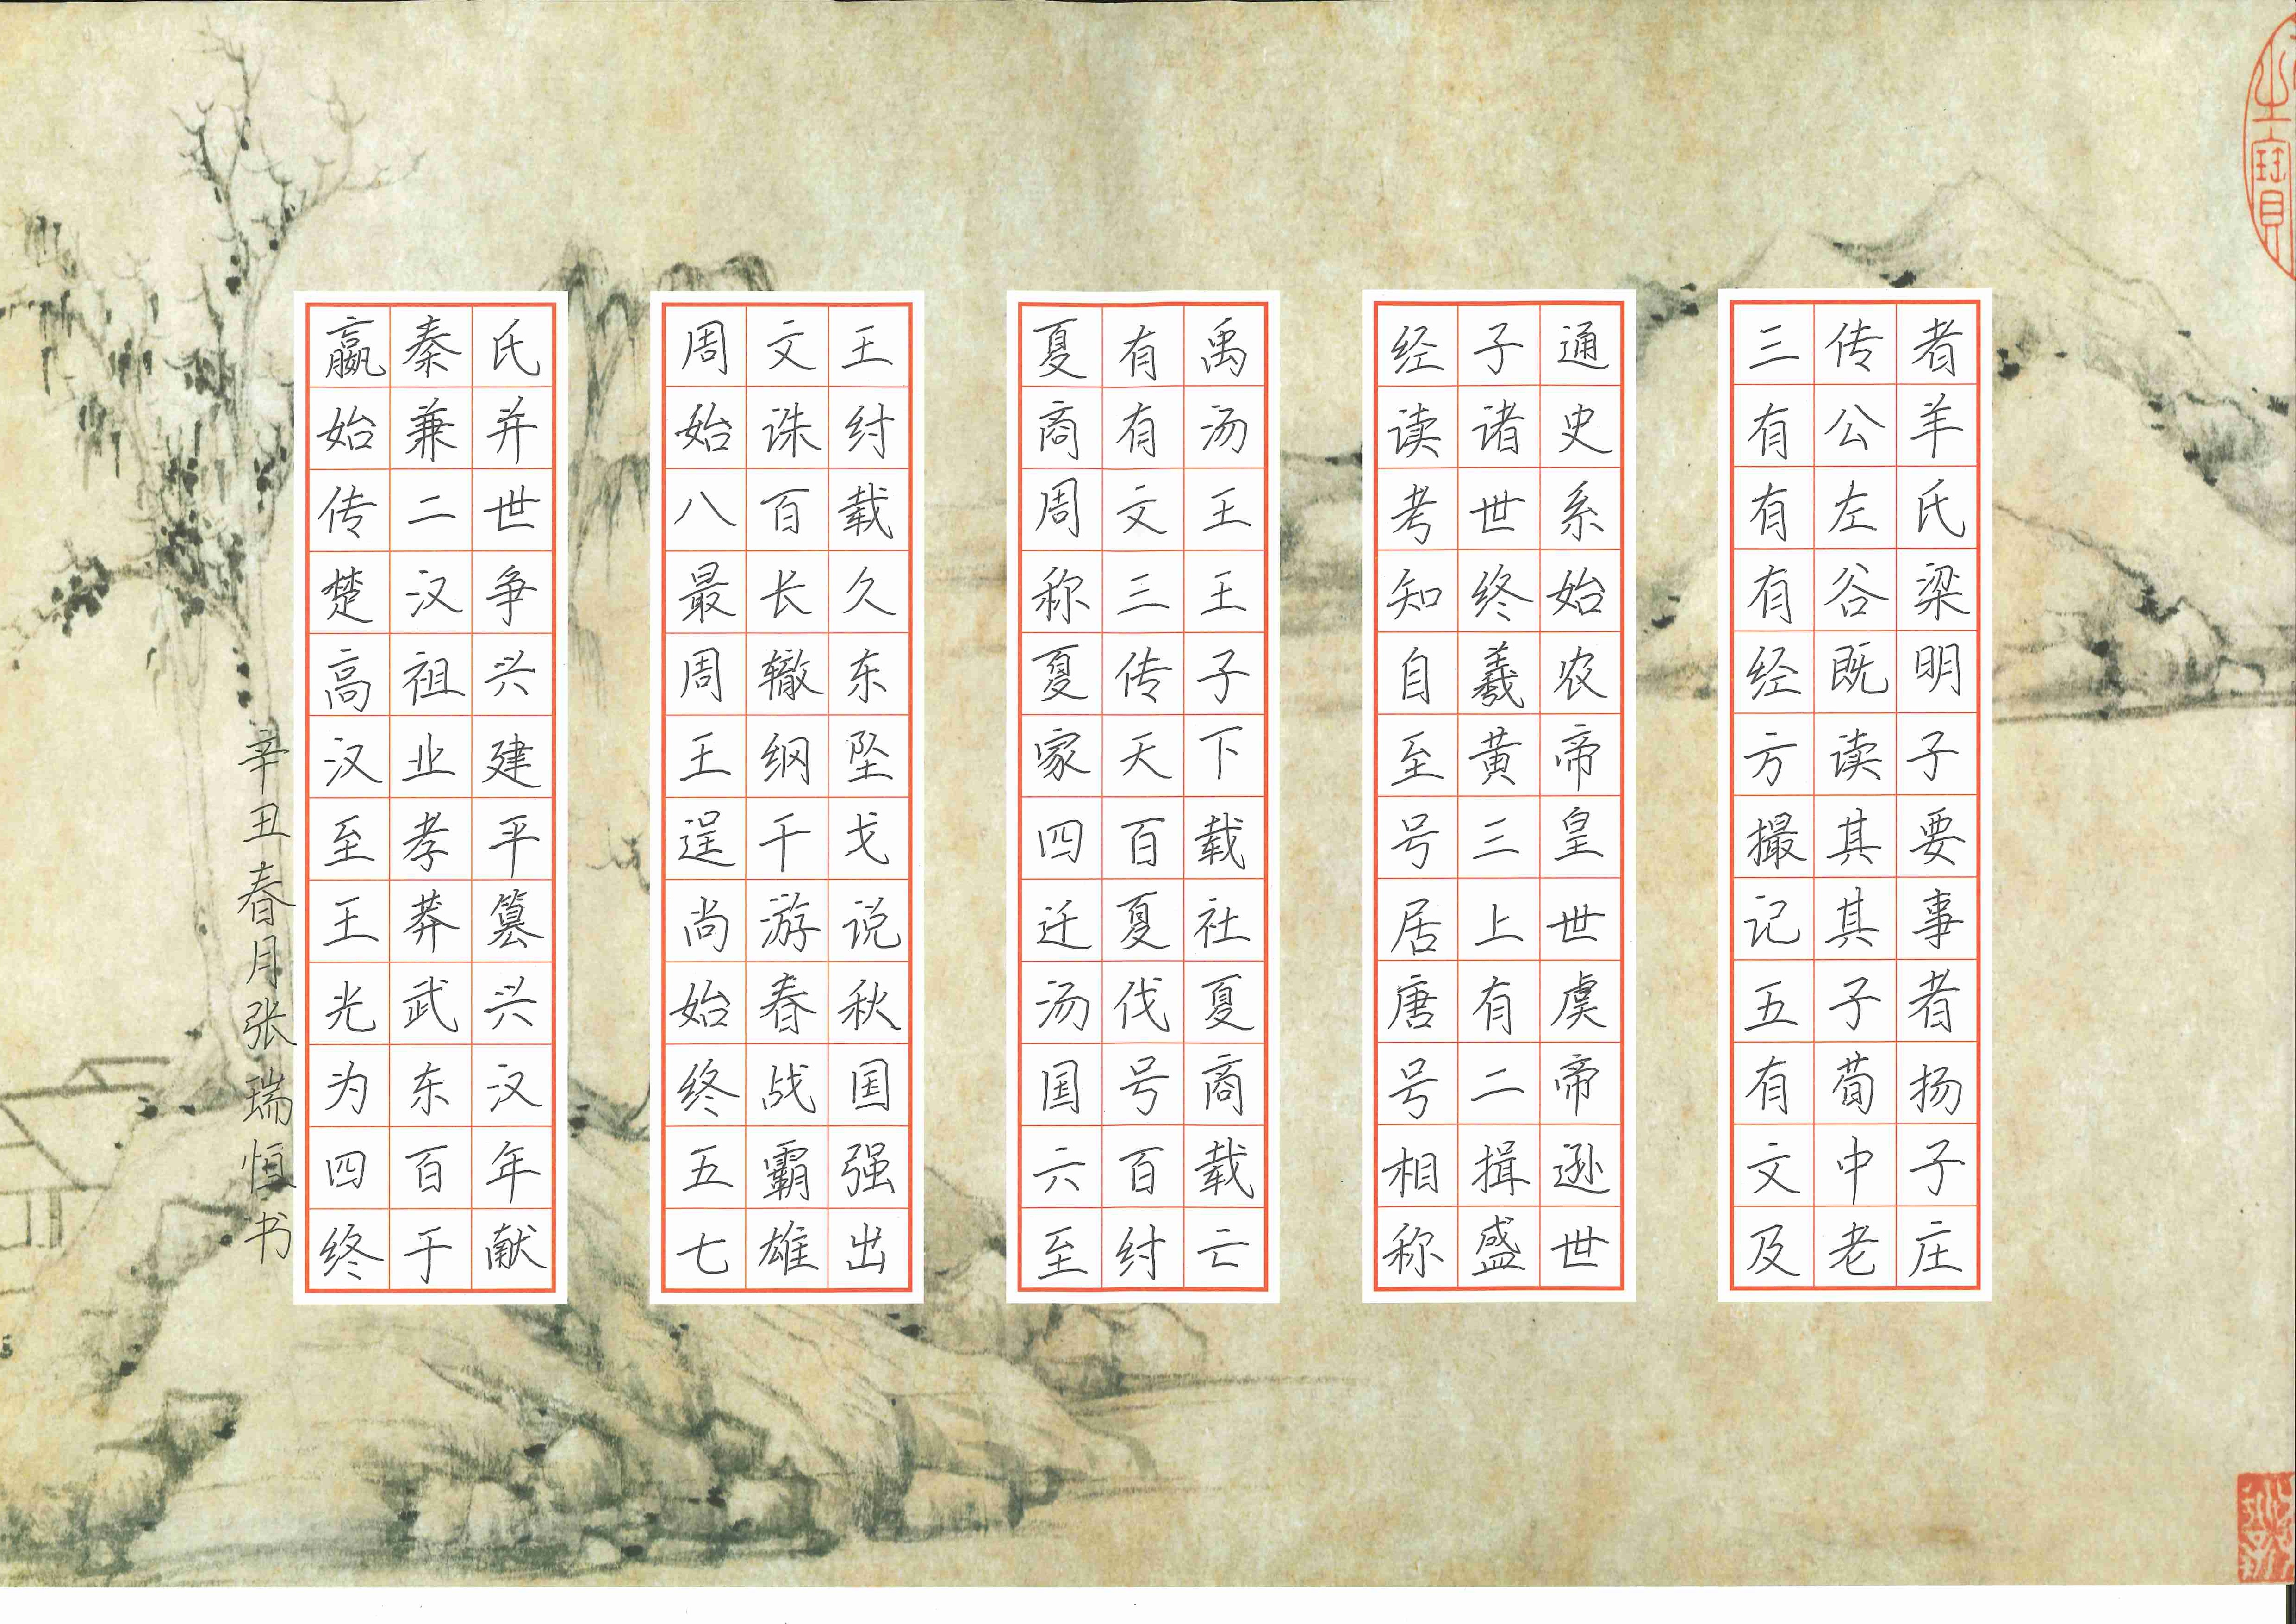 三传者
有公羊
有左氏
有谷梁
经既明
方读子
撮其要
记其事
五子者
有荀扬
文中子
及老庄
经子通
读诸史
考世系
知终始
自羲农
至黄帝
号三皇
居上世
唐有虞
号二帝
相揖逊
称盛世
夏有禹
商有汤
周文王
称三王
夏传子
家天下
四百载
迁夏社
汤伐夏
国号商
六百载
至纣亡
周文王
始诛纣
八百载
最长久
周辙东
王纲坠
逞干戈
尚游说
始春秋
终战国
五霸强
七雄出
嬴秦氏
始兼并
传二世
楚汉争
高祖兴
汉业建
至孝平
王莽篡
光武兴
为东汉
四百年
终于献
辛丑春月张瑞恒书